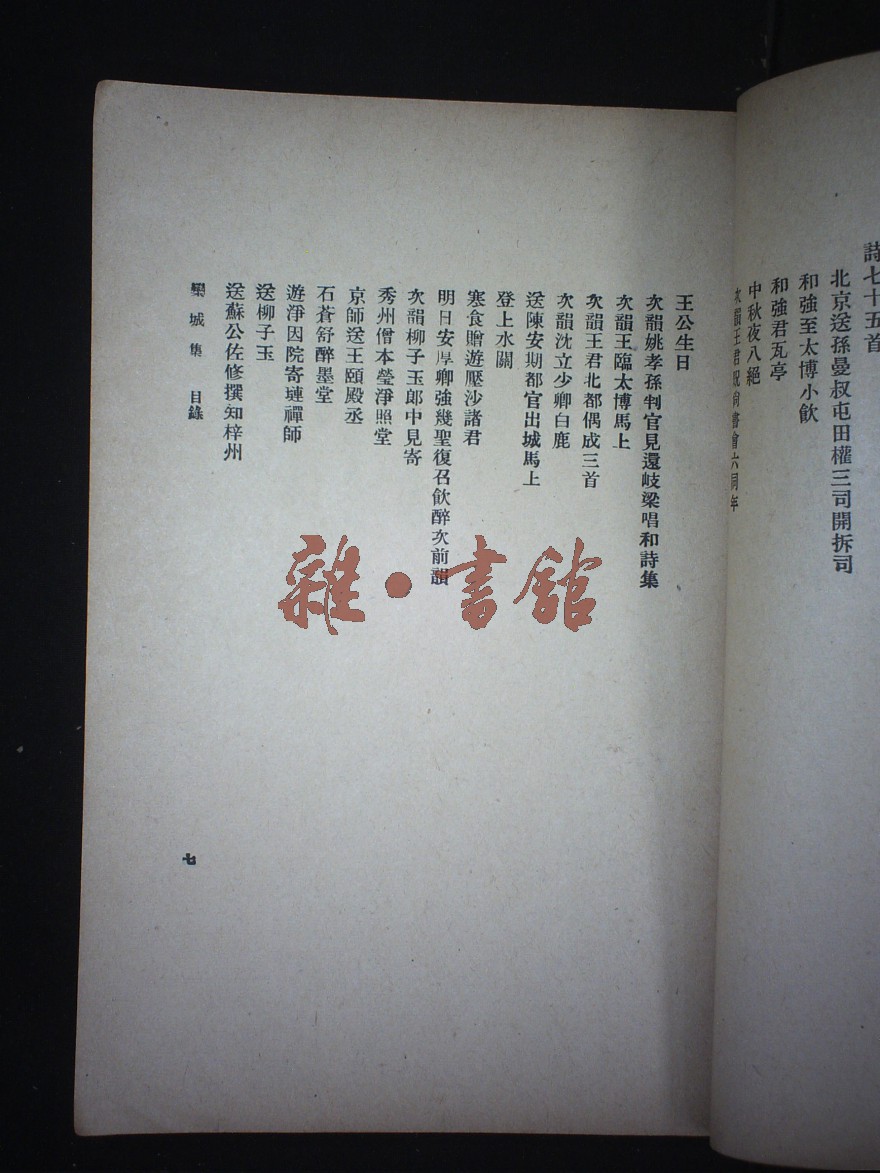 詩七十五首
北京送孫曼叔屯田權三司開拆司
和強至太博小飲
和強君瓦亭
中秋夜八絕
次韻王君貺尚書會六同年
王公生日
次韻姚孝孫判官見還岐梁唱和詩集
次韻王臨太博馬上
次韻王君北都偶成三首
次韻沈立少卿白鹿
送陳安期都官出城馬上
登上水關
寒食贈遊壓沙諸君
明日安厚卿強幾聖復召飲醉次前韻
次韻柳子玉郎中見寄
秀州僧本瑩淨照堂
京師送王頤殿丞
石蒼舒醉墨堂
遊淨因院寄璉禪師
送柳子玉
送蘇公佐修撰知梓州
欒城集 目錄
七
雜·書館